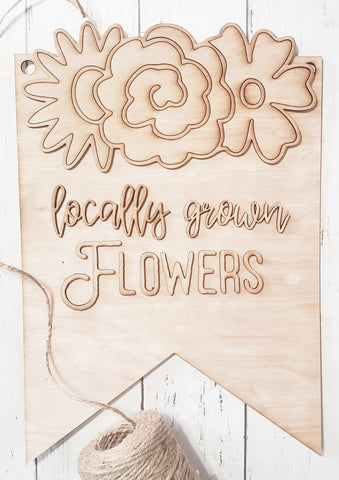 locally grown
FLOWERS